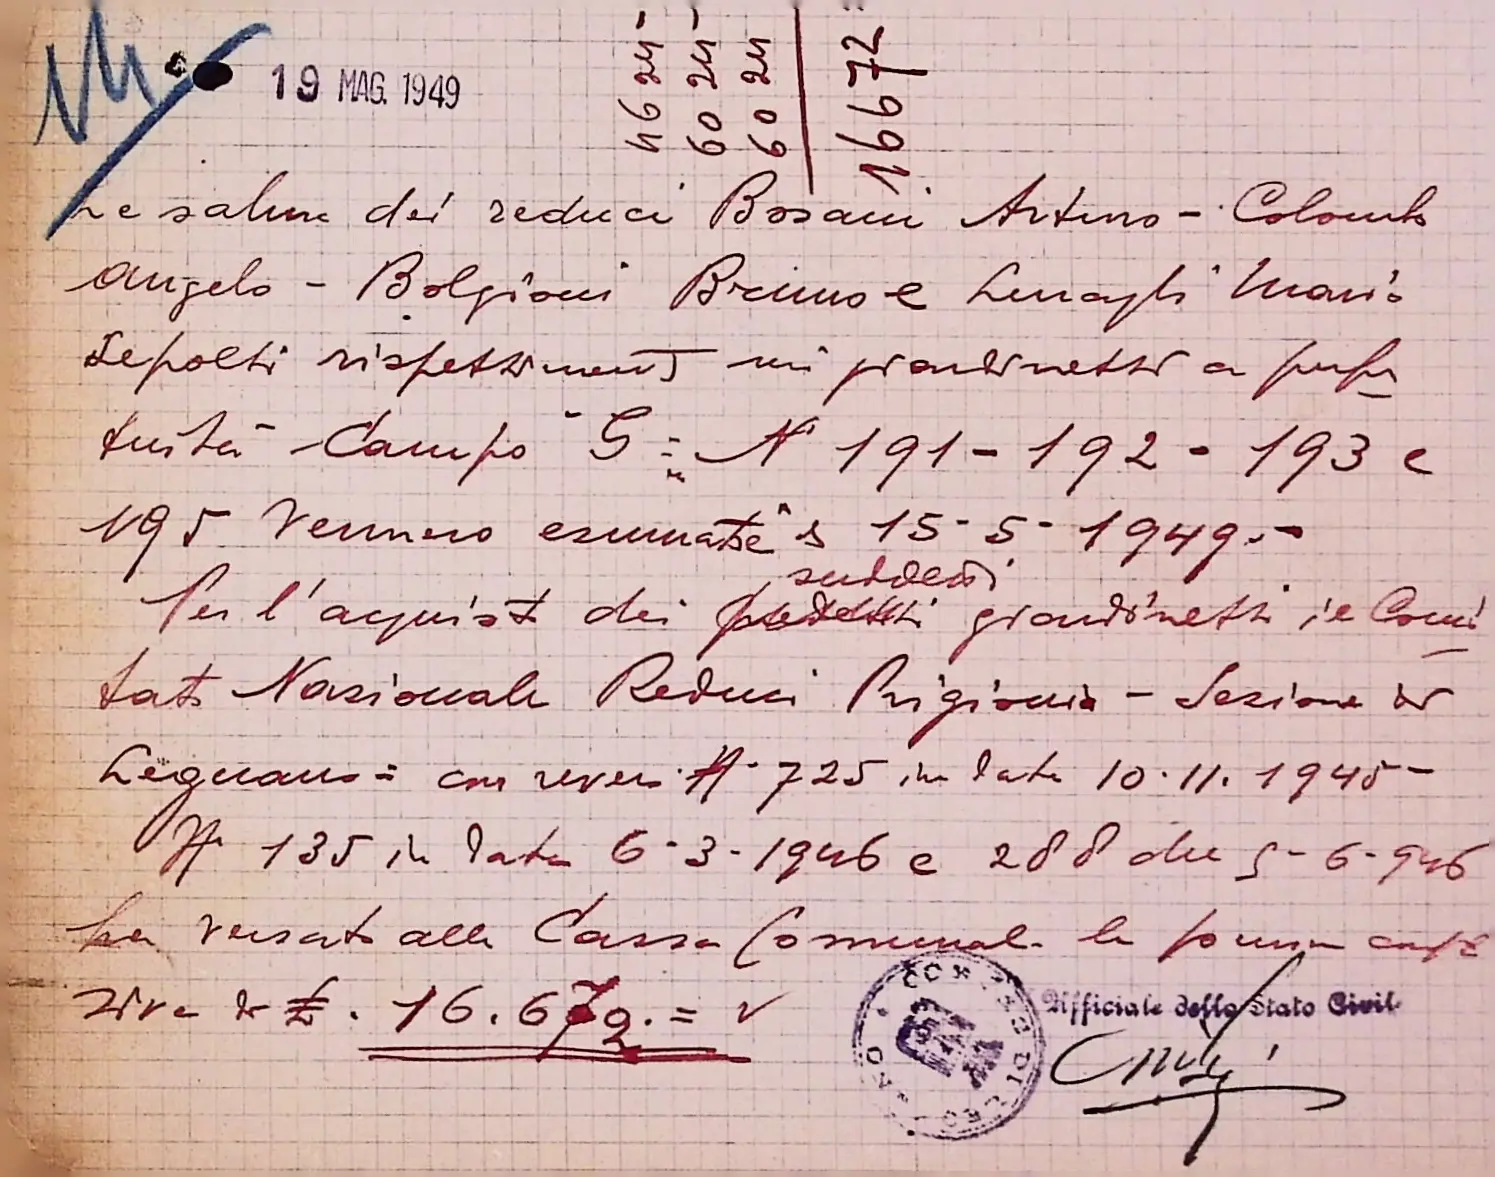 19 MAG. 1949
4624-
6024-
6024
16672
Le salme dei reduci Bosani Arturo - Colombo
Angelo - Bolgioni Bruno e Mario
Sepolti rispettivament nei giardinetti a perpe
tuità Campo "G" = N° 191 - 192 - 193 e
195 vennero esumate il 15-5-1949.-
suddetti
Per l'acquisto dei predetti giardinetti il Comi
tato Nazionale Reduci Prigionia - Sezione di
Legnano = con revers. N° 725 in data 10.11.1945 -
N° 135 in data 6-3-1946 e 288 del 5-6-946
ha versato alla Cassa Comunale la somma comples
siva di £. 16.672.= v
COMUNE DI LEGNANO
Ufficiale dello Stato Civile